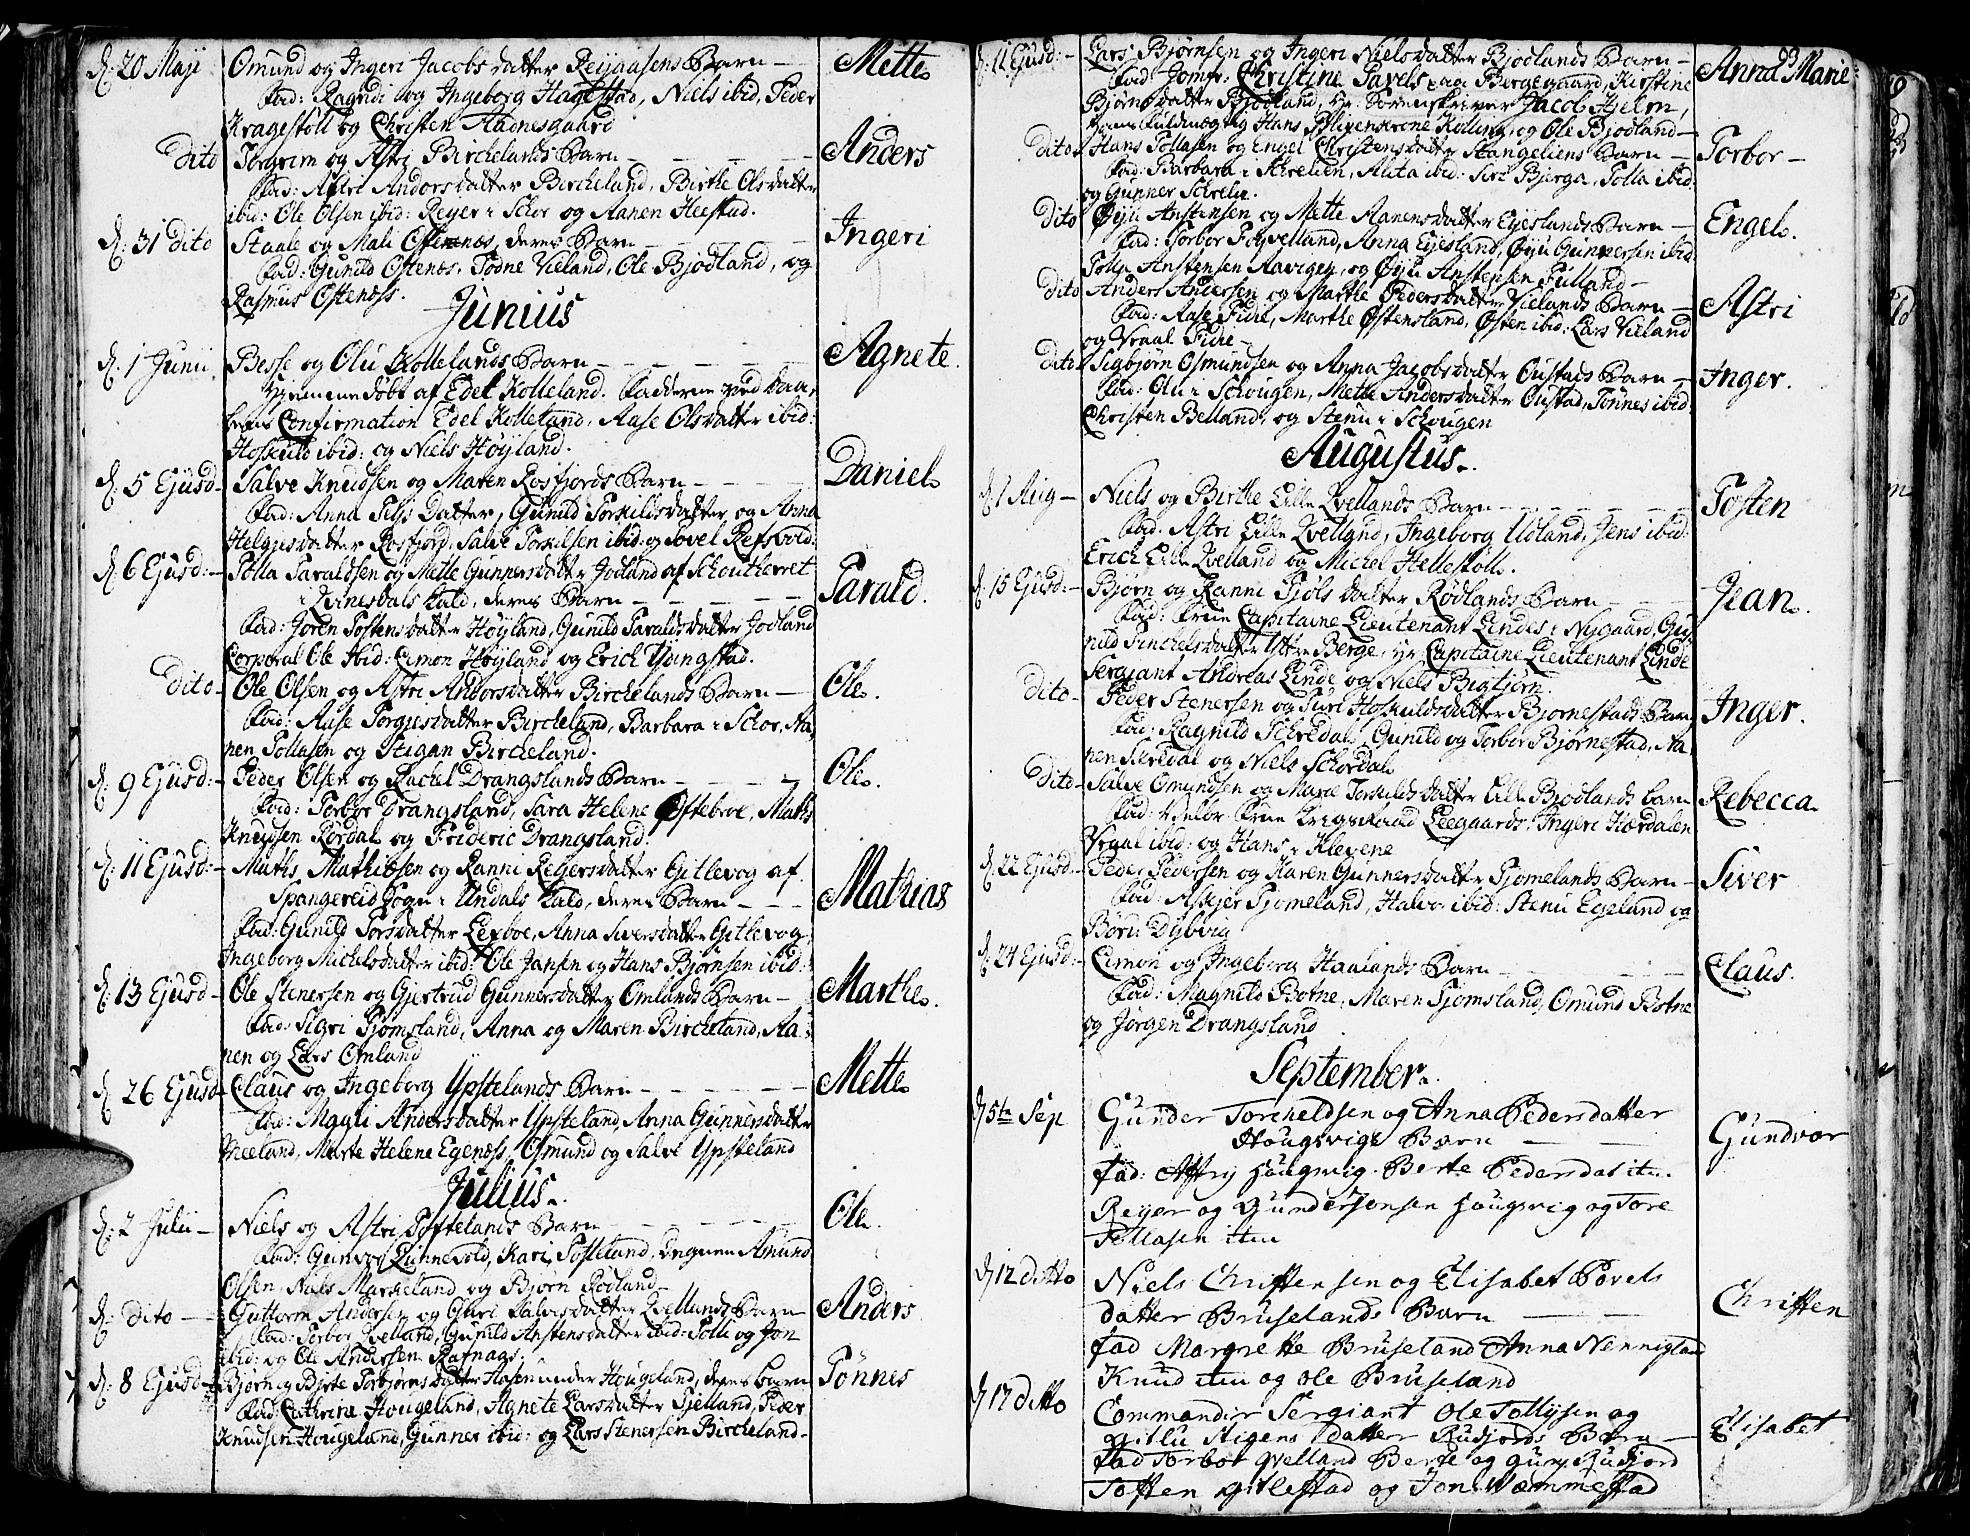 d: 20 Maji Omund og Ingeri Jacobs datter Reijaasens Barn — Mette
Fad: Ragndi og Ingeborg Hagestad, Niels ibid, Peder
Kragestöll og Christen Aadnesgaard
Dito Torgrim og Astri Birchelands Barn — Anders
Fad: Astri Andorsdatter Bircheland, Birthe Olsdatter
ibid: Ole Olsen ibid: Reyer i Schor og Aanen Heestad.
d: 31 Dito Staale og Mali Ostenes, deres Barn — Ingeri
Fad: Gunild Ostenes, Todne Vieland, Ole Bjodland, og
Rasmus Ostenöss.
Junius
d: 1 Junii Besse og Olu Kollelands Barn — Agnete.
Hjemmedöbt af Edel Kolleland. Fadderne ved Daa-
bens Confirmation Edel Kolleland, Aase Olsdatter ibid:
Hoskuld ibid: og Niels Höyland.
d: 5 Ejusd — Salve Knudsen og Maren Rosfjords Barn — Daniel
Fad: Anna Datter, Gunild Torkildsdatter og Anna
Helgjesdatter Rosfjord, Salve Torkilsen ibid: og Tovel Refsvold.
d: 6 Ejusd: — Tolla Taraldsen og Mette Gunnersdatter Jodland af Schoutherret
i Qvinesdals Kald, deres Barn — Tarald.
Fad: Joren Tostensdatter Höyland, Gunild Taraldsdatter Jodland
Corporal Ole Ibid: Cimon Höyland og Erich
Dito — Ole Olsen og Astri Andorsdatter Birchelands Barn — Ole.
Fad: Aase Torgiesdatter Bircheland, Barbara i Schor, Aa-
nen Tollasen og Stigan Bircheland.
d: 9 Ejusd: — Peder Olsen og Rachel Drangslands Barn — Ole.
Fad: Torbor Drangsland, Sara Helene Osteboe, Maths
Knudsen Rördal og Frideric Drangsland.
d: 11 Ejusd: — Maths Mathiesen og Ranni Reyersdatter Gitlevog af
Spangereid Sogn i Undals Kald, deres Barn — Mathias
Fad: Gunild Torsdatter Lexboe, Anna Siversdatter Gitlevog,
Ingeborg Michelsdatter ibid: Ole Jansen og Hans Bjørnsen ibid:
d: 13 Ejusd — Ole Stenersen og Gjertrud Gunnersdatter Omlands Barn — Marthe.
Fad: Sigri Tjomsland, Anna og Maren Bircheland, Aa-
nen og Lars Omland
d: 26 Ejusd Claus og Ingeborg Ypstelands Barn — Mette
Fad: Magli Andersdatter Ypsteland, Anna Gunnersdatter
Meeland, Marte Helene Egenöss, Osmund og Salve Ypsteland
Julius.
d: 2 Julii — Niels og Astri Tostelands Barn — Ole.
Fad: Gunvor Linnevold, Kari Tosteland, Degnen Amund
Olsen, Niels Markeland og Bjørn Rödland
d: Dito — Guttorm Andersen og Guri Salvesdatter Qvellands Barn — Anders
Fad: Torbor Qvelland, Gunild Anstensdatter ibid: Tolli og Jon
ibid: og Ole Andersen Rafnags.
d: 8 Ejusd — Bjørn og Birte Torbjørnsdatter Hasen under Hougeland, deres Barn Tönnes
Fad: Cathrine Hougeland, Agnete Larsdatter Tjelland, Peder
Knudsen Hougeland, Gunner ibid: og Lars Stenersen Bircheland.
d: 11 Ejusd: — Lars Bjørnsen og Ingeri Nielsdatter Bjodlands Barn — Anna Marie
Fad: Jomfr: Christine Pavels paa Bergegaard, Kirstine
Bjørnsdatter Bjodland, Hr. Sorenskriver Jacob Hjelm,
Hans Fuldmægtig Hans Kolling, og Ole Bjodland —
Dito — Hans Tollasen og Engel Christensdatter Stangeliens Barn — Torbor —
Fad: Barbara i Skrelien, Alita ibid: Siri Bjerga, Tolla ibid:
og Gunner Schrelie.
Dito Øyu Anstensen og Mette Aanensdatter Eyeslands Barn — Engel.
Fad: Torbor Foyvelland, Anna Eyesland, Øyu Gunversen ibid
Tolli Anstensen Aavigen, og Øyu Anstensen Fulland —
Dito Anders Andersen og Marthe Pedersdatter Vielands Barn — Astri
Fad: Aase Fidie, Marthe Östensland, Östen ibid: Lars Vieland
og Vraal Fidie —
Dito — Sigbjørn Osmundsen og Anna Jacobsdatter Oustads Barn — Inger.
Fad: Olu i Schougen, Mette Andersdatter Oustad, Tönnes ibid:
Christen Belland, og Stenu i Schougen
Augustus.
d. 1 Aug — Niels og Birthe Lille Qvellands Barn — Tosten
Fad: Astri Lille Qvelland, Ingeborg Udland, Jens ibid:
Erich Lille Qvelland og Michel Hellestöll.
d: 15 Ejusd: — Bjørn og Ranni Tjöls datter Rødlands Barn — Jean.
Fad: Frue Capitaine Lieutenant Lindes i Nygaard, Gu-
nild datter Ytre Berge, Hr Capitaine Lieutenant Linde
Sergiant Andreas Linde og Niels Bigtjørn.
Dito — Peder Stenersen og Turi Hoskuldsdatter Bjornestads Barn Inger.
Fad: Ragnild Schredal, Gunild og Torbor Bjørnestad, Aa-
nen Skredal og Niels Schordal
Dito — Salve Omundsen og Marie Torkildsdatter Lille Bjodlands barn Rebecca
Fad: Velbr: Frue Krigsraad Leegaards, Ingeri Hardalen
Vraal ibid: og Hans i Klevene
d: 22 Ejusd: — Peder Pedersen og Karen Gunnersdatter Tjomelands Barn — Siver
Fad: Askjer Tjomeland, Halvor ibid: Stenu Egeland og
Børu Dybvig
d: 24 Ejusd: — Cimon og Ingeborg Haalands Barn — Claus.
Fad: Magnild Botne, Maren Tjomsland, Omund Botne
og Jörgen Drangsland
September.
d 5te Sep Gunder Torcheldsen og Anna Pedersdatter
Hougsvigs Barn — Gundvor
fad: Astry Hougsvig Berte Pedersdat item
Reyer og Gunder Hougsvig og Tore
Tollasen item
d 12 ditto Niels Christensen og Elisabet Povels
datter Bruselands Barn — Christen
fad Margrette Bruseland Anna Nennigsland
Knud item og Ole Bruseland
d 17 ditto Commandir Sergiant Ole Tollysen og
Gitlu Stigens datter Rusjords Barn — Elisabet
fad Torbor Qvelland Berte og Gury Rusjord
Tosten Gitlestad og Jon Vemmestad